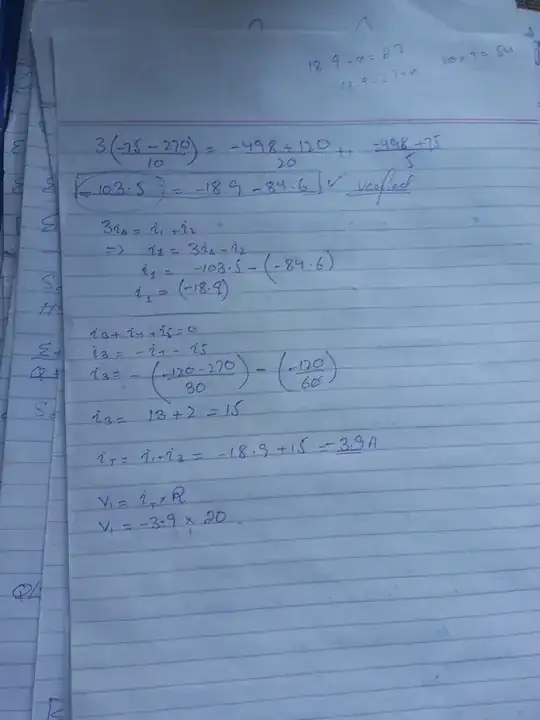 18.9 - x = 87
18.9 - 27 = x
3(-75 - 270 / 10) = -498 + 120 / 20 + -498 + 75 / 5
-103.5 = -18.9 - 84.6 ✓ verified
3iₐ = i₁ + i₂
⇒ i₁ = 3iₐ - i₂
i₁ = -103.5 - (-84.6)
i₁ = (-18.9)
i₃ + i₄ + i₅ = 0
i₃ = -i₄ - i₅
i₃ = -(-120 - 270 / 30) - (-120 / 60)
i₃ = 13 + 2 = 15
i_T = i₁ + i₃ = -18.9 + 15 = -3.9A
V₁ = i_T × R
V₁ = -3.9 × 20